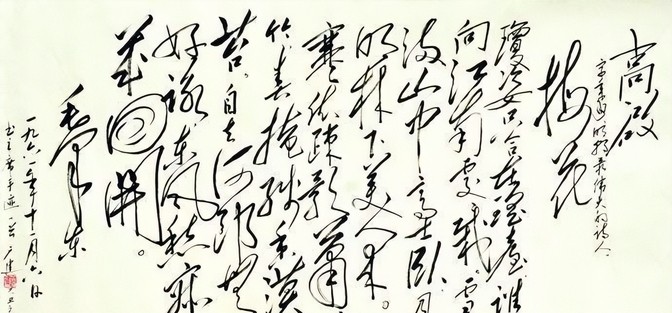 高啟
字季迪,明朝最伟大的诗人
梅花
瓊姿只合在瑶臺 誰
向江南處〻栽 雪
满山中高士卧 月
明林下美人来。
寒依疎影萧
竹,春掩残香漠
苔。自去何郎無
好詠,東風愁寂
几回開。
毛泽东
一九六一年十一月六日